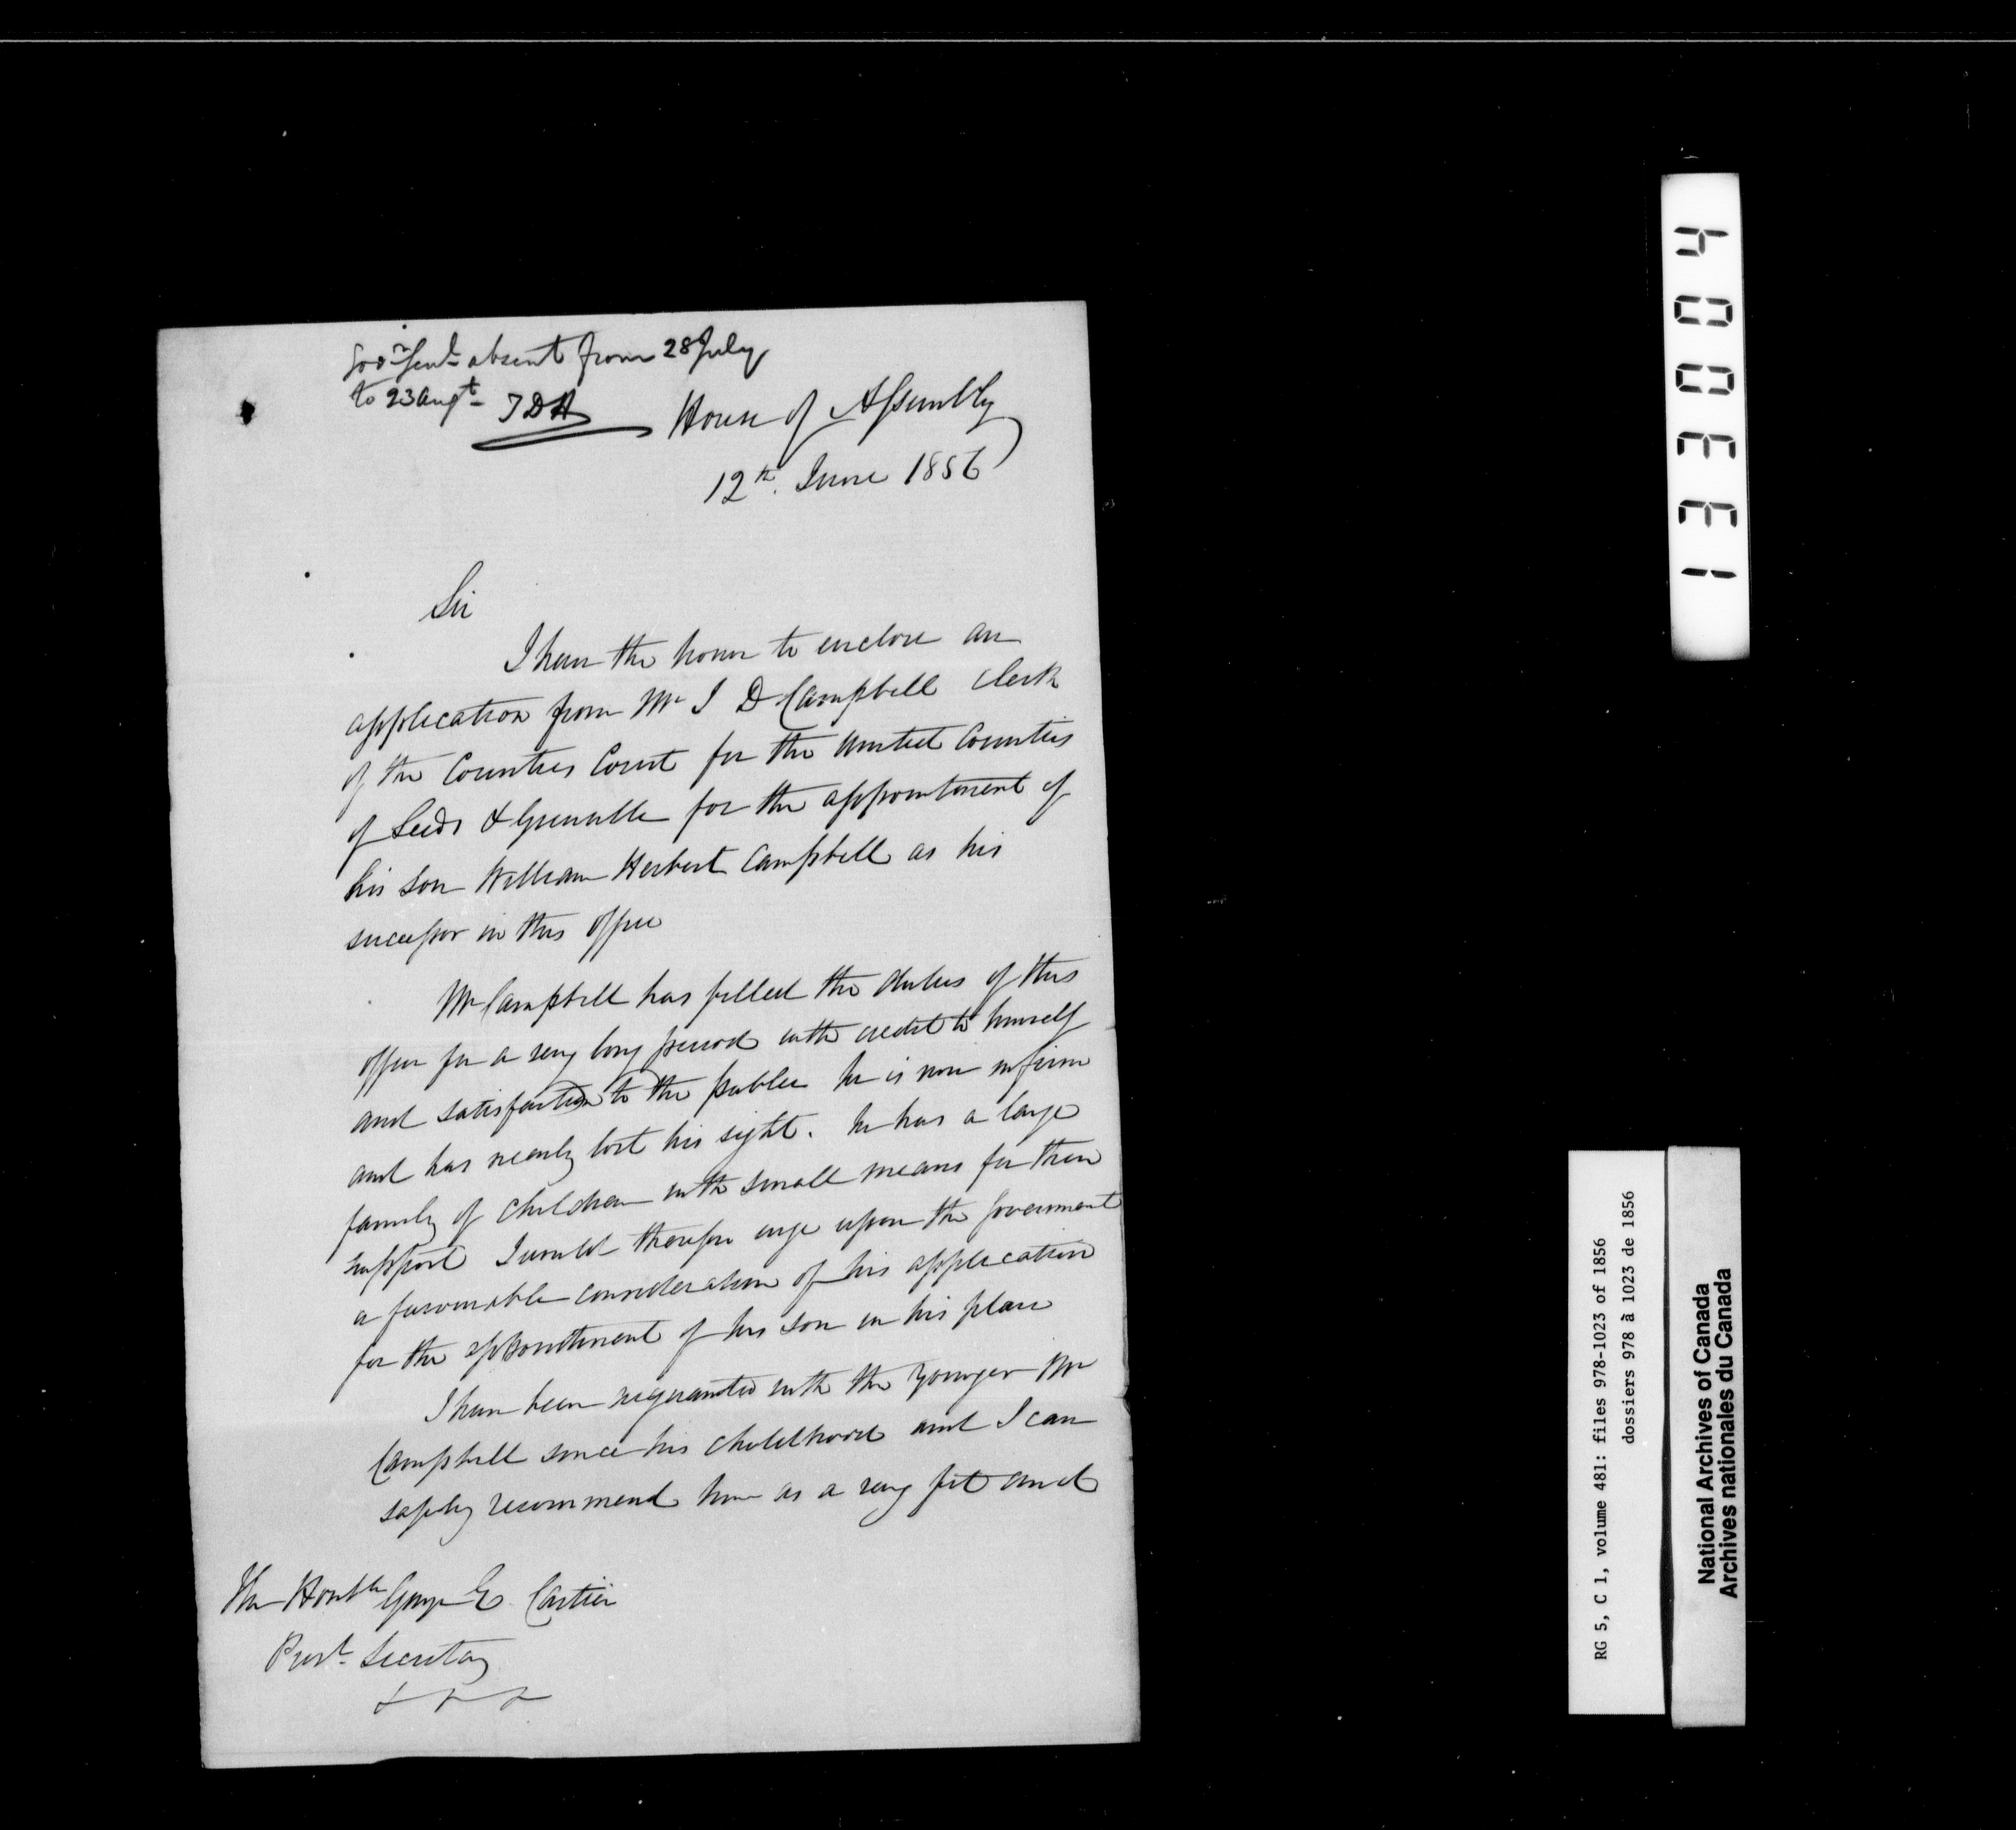 Govr Genl absent from 28 July
to 23 Augt - TDH
House of Assembly
12th. June 1856
Sir
I have the honor to enclose an
application from Mr J D Campbell Clerk
of the Counties Court for the United Counties
of Leeds & Grenville for the appointment of
his son William Herbert Campbell as his
successor in this office
Mr Campbell has filled the duties of this
office for a very long period with credit to himself
and satisfaction to the public he is now infirm
and has nearly lost his sight. he has a large
family of children with small means for their
support I would therefore urge upon the Government
a favourable consideration of his application
for the appointment of his son in his place
I have been acquainted with the Younger Mr
Campbell since his childhood and I can
safely recommend him as a very fit and
The Honble George E. Cartier
Provl. Secretary
& & &
13E004
RG 5, C 1, volume 481: files 978-1023 of 1856
dossiers 978 à 1023 de 1856
National Archives of Canada
Archives nationales du Canada